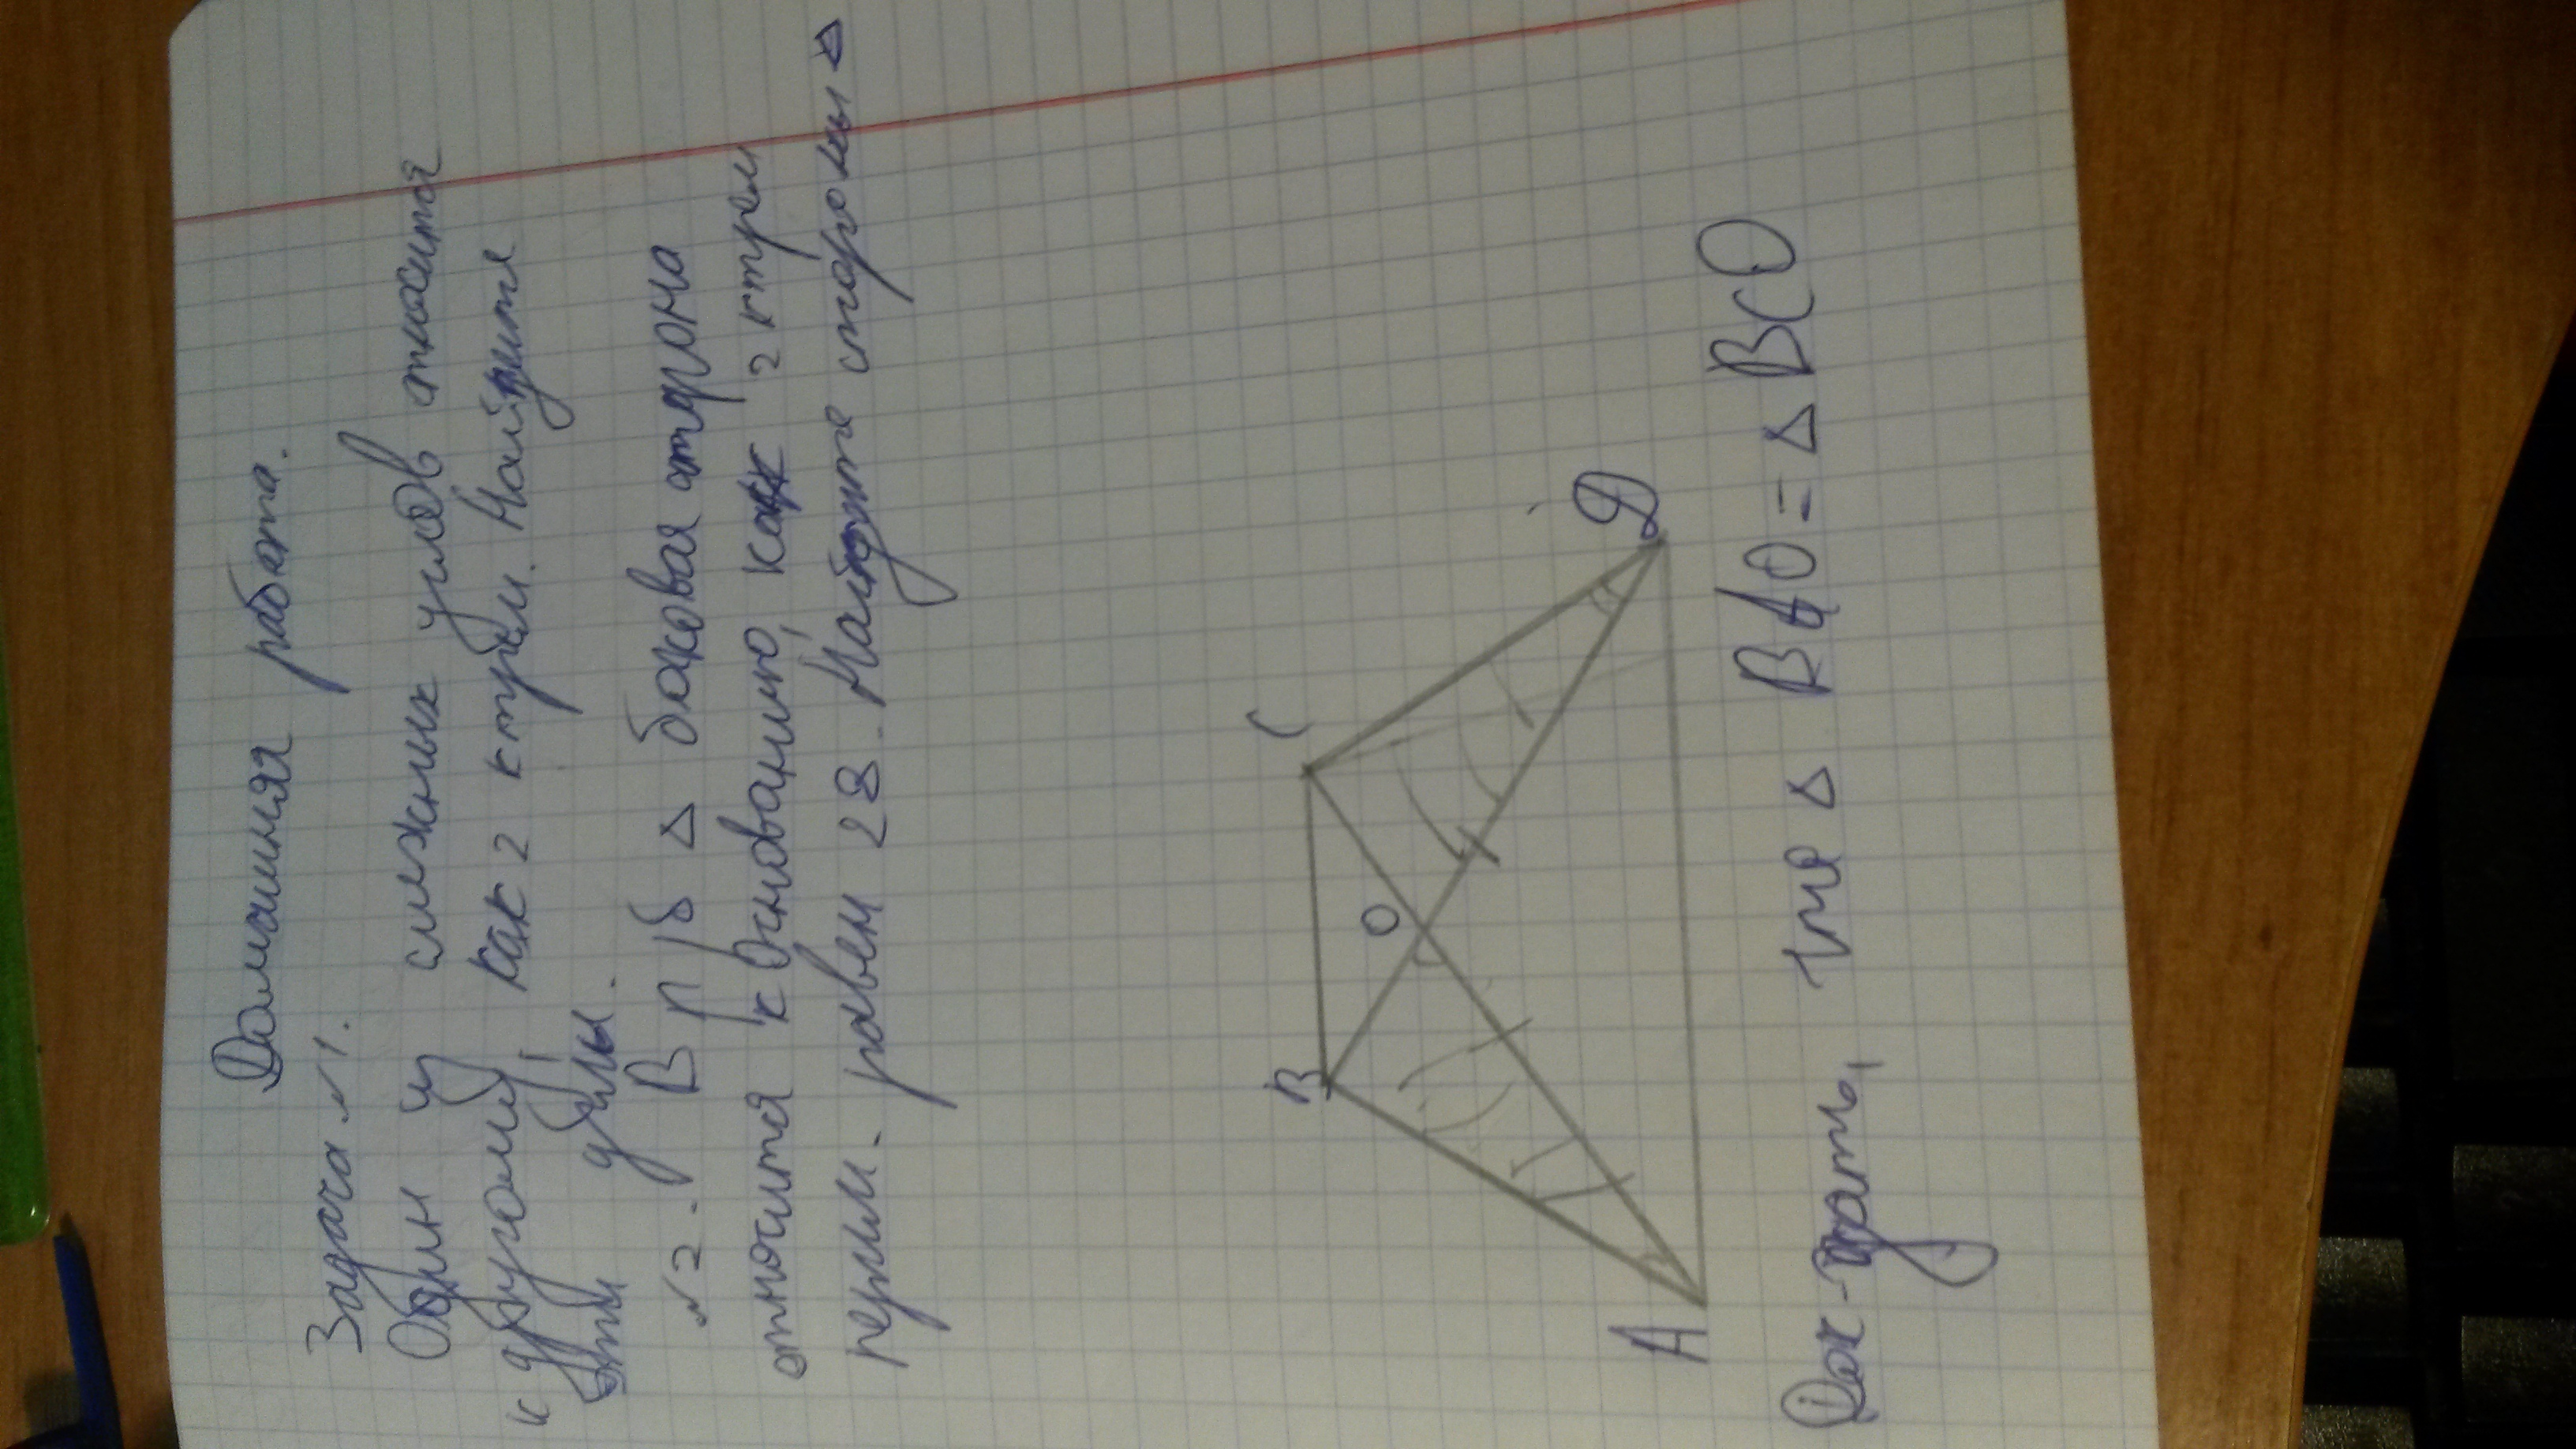 Домашняя работа.
Задача №1.
Один из смежных углов относится
к другому, как 2 к трём. Найдите
эти углы.
№2. В п/б Δ боковая сторона
относится к основанию, как 2 к трем
перим. равен 28. Найдите стороны Δ
B C
O
A Д
Док-зать, что Δ BAO = Δ BCO